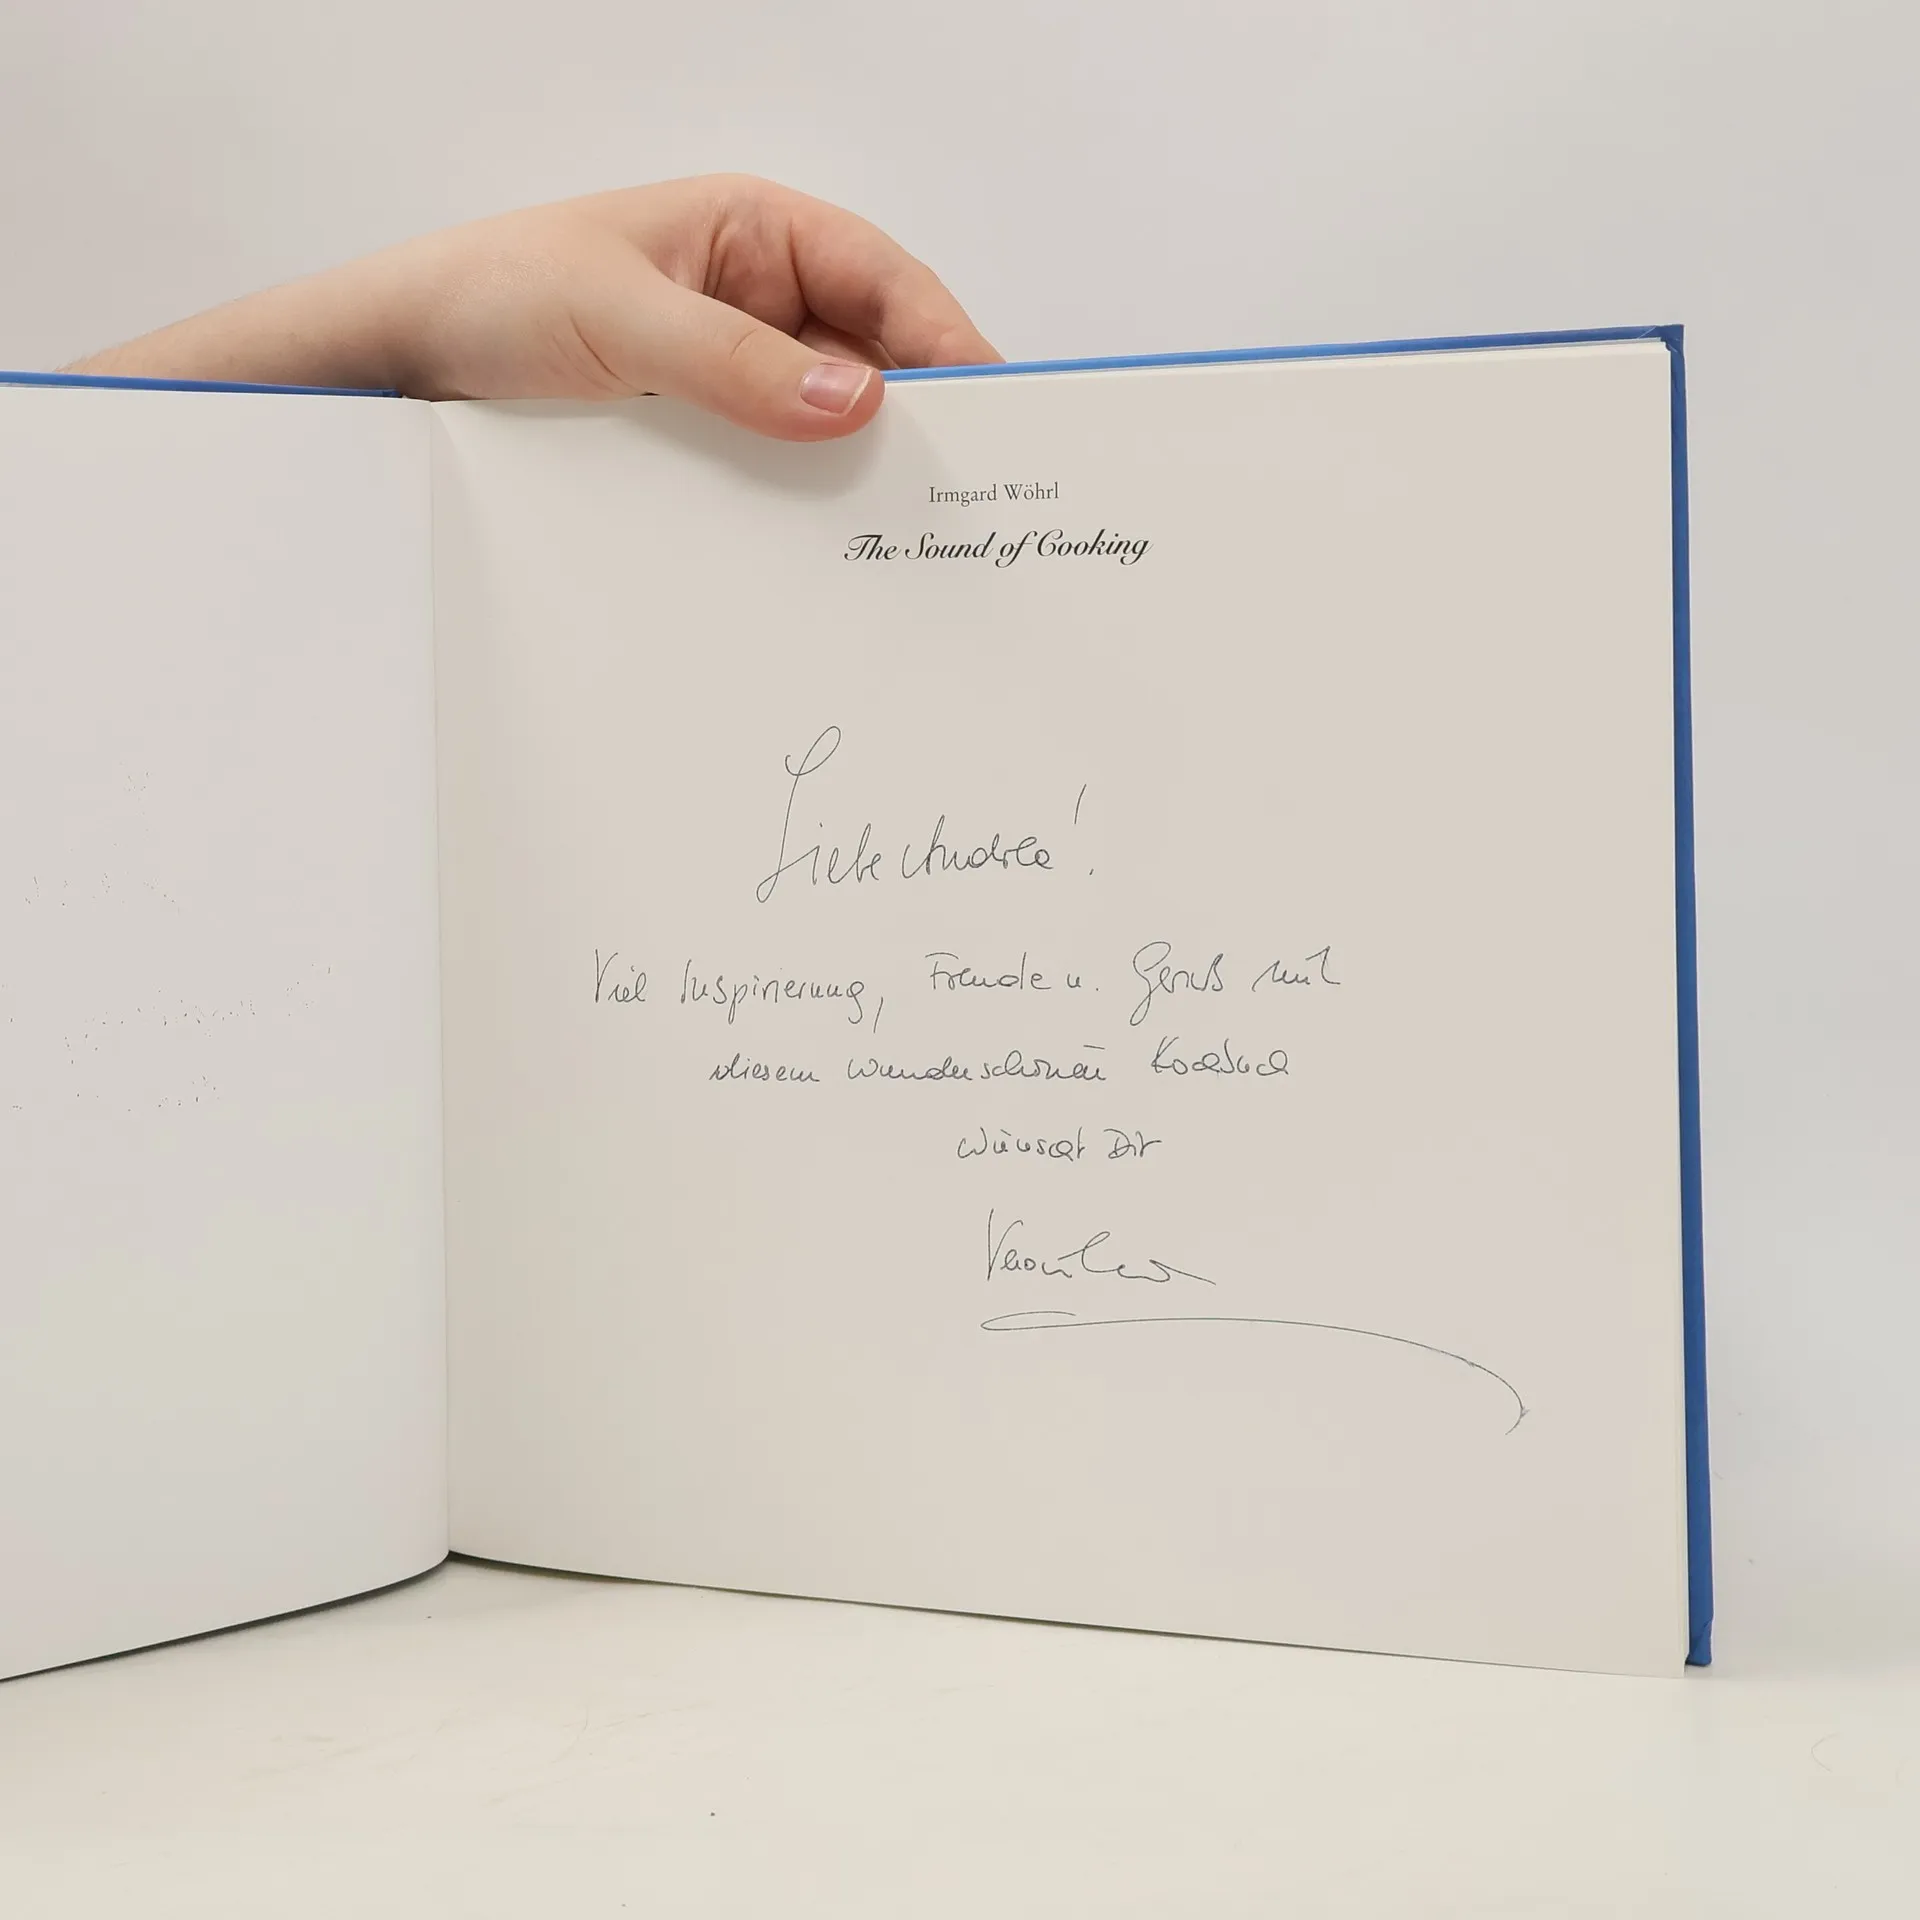 Irmgard Wöhrl
The Sound of Cooking
Liebe Andrea!
Viel Inspirierung, Freude u. Genuß mit
diesem wunderschönen Kochbuch
wünscht Dir